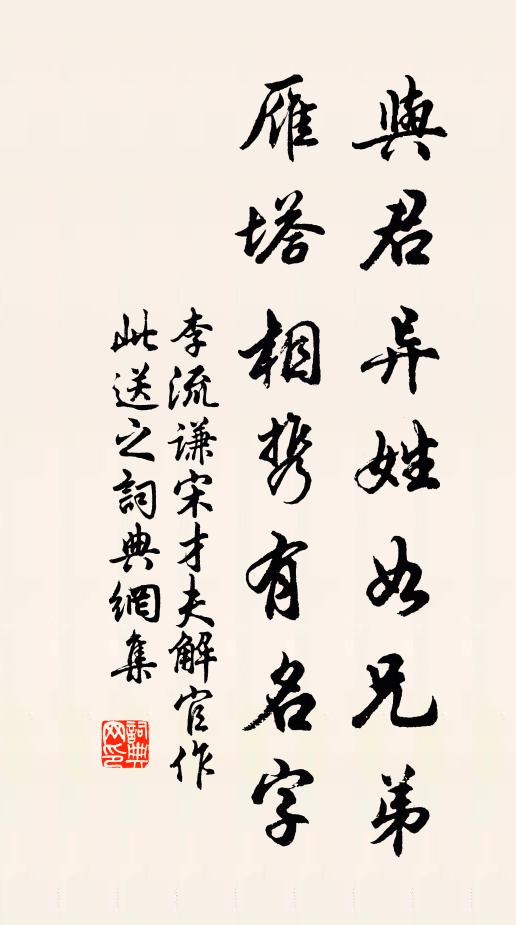 與君异姓如兄弟
雁塔相携有名字
李流谦宋才夫解官作
此送之詞典網集
詞典网印